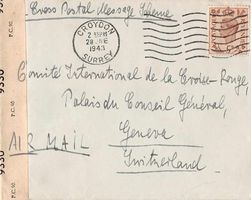 Cross Postal Message Scheme
CROYDON
2 45 PM
28 JNE
1943
SURREY
Comité International de la Croix-Rouge,
Palais du Conseil Général,
AIR MAIL
Geneva
Switzerland.
P.C. 90
9330
P.C. 90
9330